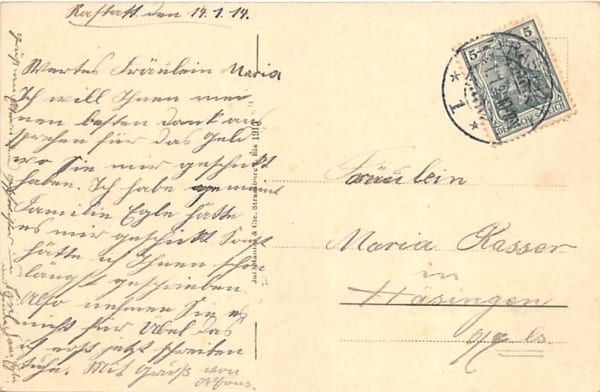 Rastatt den 14.1.14.
Wertes Fräulein Maria
Ich will Ihnen mei
nen besten Dank aus
sprechen für das Geld
wo Sie mir geschickt
haben. Ich habe gemeint
Familie Egle hätte
es mir geschickt Sonst
hätte ich Ihnen schon
längst geschrieben.
Also nehmen Sie es
nicht für Übel das
ich erst jetzt schreiben
tuhe. Mit Gruß von
Alfons.
Jul. Manias & Cie. Strassburg
1913
5 5
DEUTSCHES REICH
* 1 *
Fräulein
Maria Kasser
in
Häsingen